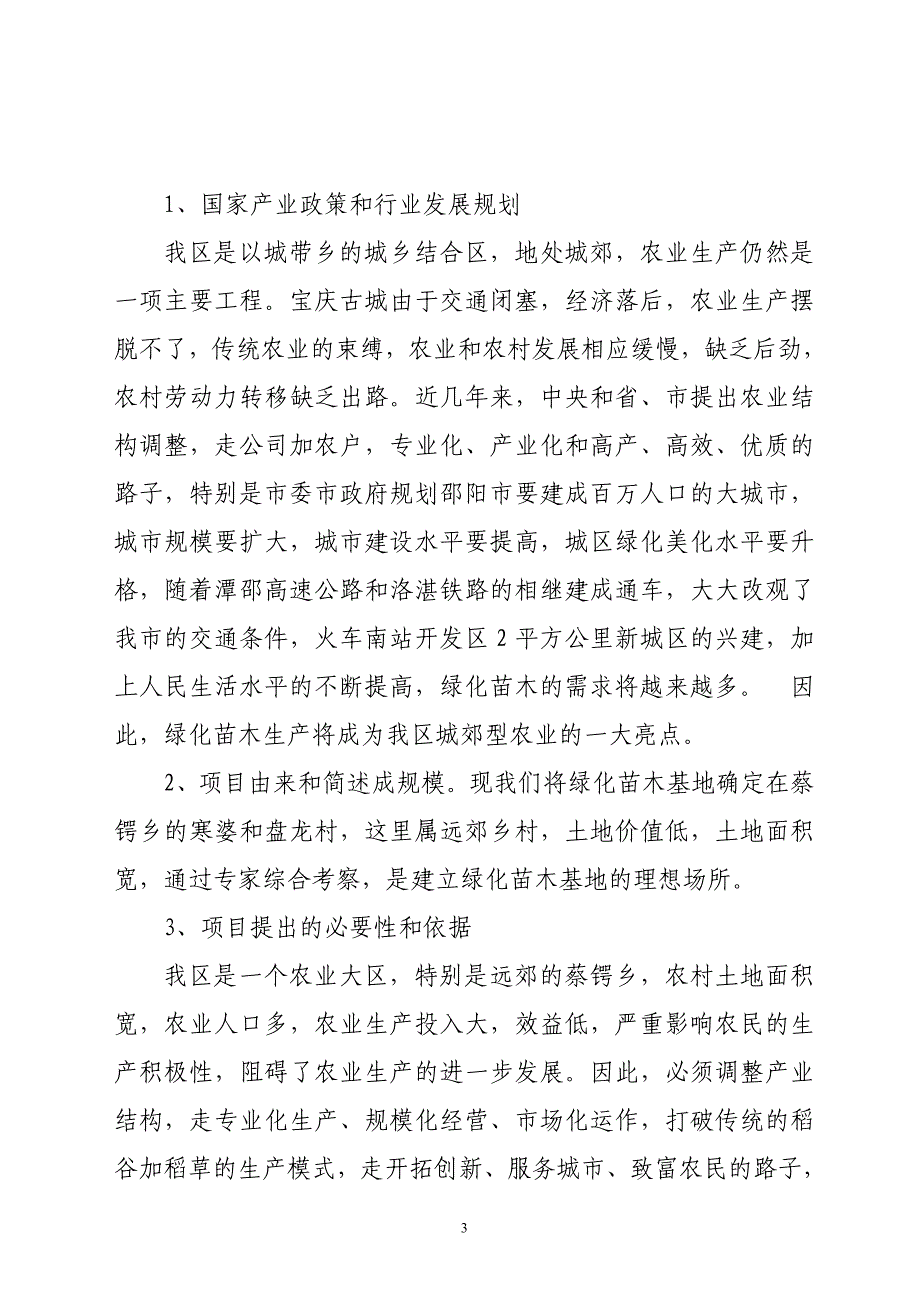 1、国家产业政策和行业发展规划
我区是以城带乡的城乡结合区，地处城郊，农业生产仍然是
一项主要工程。宝庆古城由于交通闭塞，经济落后，农业生产摆
脱不了，传统农业的束缚，农业和农村发展相应缓慢，缺乏后劲，
农村劳动力转移缺乏出路。近几年来，中央和省、市提出农业结
构调整，走公司加农户，专业化、产业化和高产、高效、优质的
路子，特别是市委市政府规划邵阳市要建成百万人口的大城市，
城市规模要扩大，城市建设水平要提高，城区绿化美化水平要升
格，随着潭邵高速公路和洛湛铁路的相继建成通车，大大改观了
我市的交通条件，火车南站开发区 2 平方公里新城区的兴建，加
上人民生活水平的不断提高，绿化苗木的需求将越来越多。　因
此，绿化苗木生产将成为我区城郊型农业的一大亮点。
2、项目由来和简述成规模。现我们将绿化苗木基地确定在蔡
锷乡的寒婆和盘龙村，这里属远郊乡村，土地价值低，土地面积
宽，通过专家综合考察，是建立绿化苗木基地的理想场所。
3、项目提出的必要性和依据
我区是一个农业大区，特别是远郊的蔡锷乡，农村土地面积
宽，农业人口多，农业生产投入大，效益低，严重影响农民的生
产积极性，阻碍了农业生产的进一步发展。因此，必须调整产业
结构，走专业化生产、规模化经营、市场化运作，打破传统的稻
谷加稻草的生产模式，走开拓创新、服务城市、致富农民的路子，
3